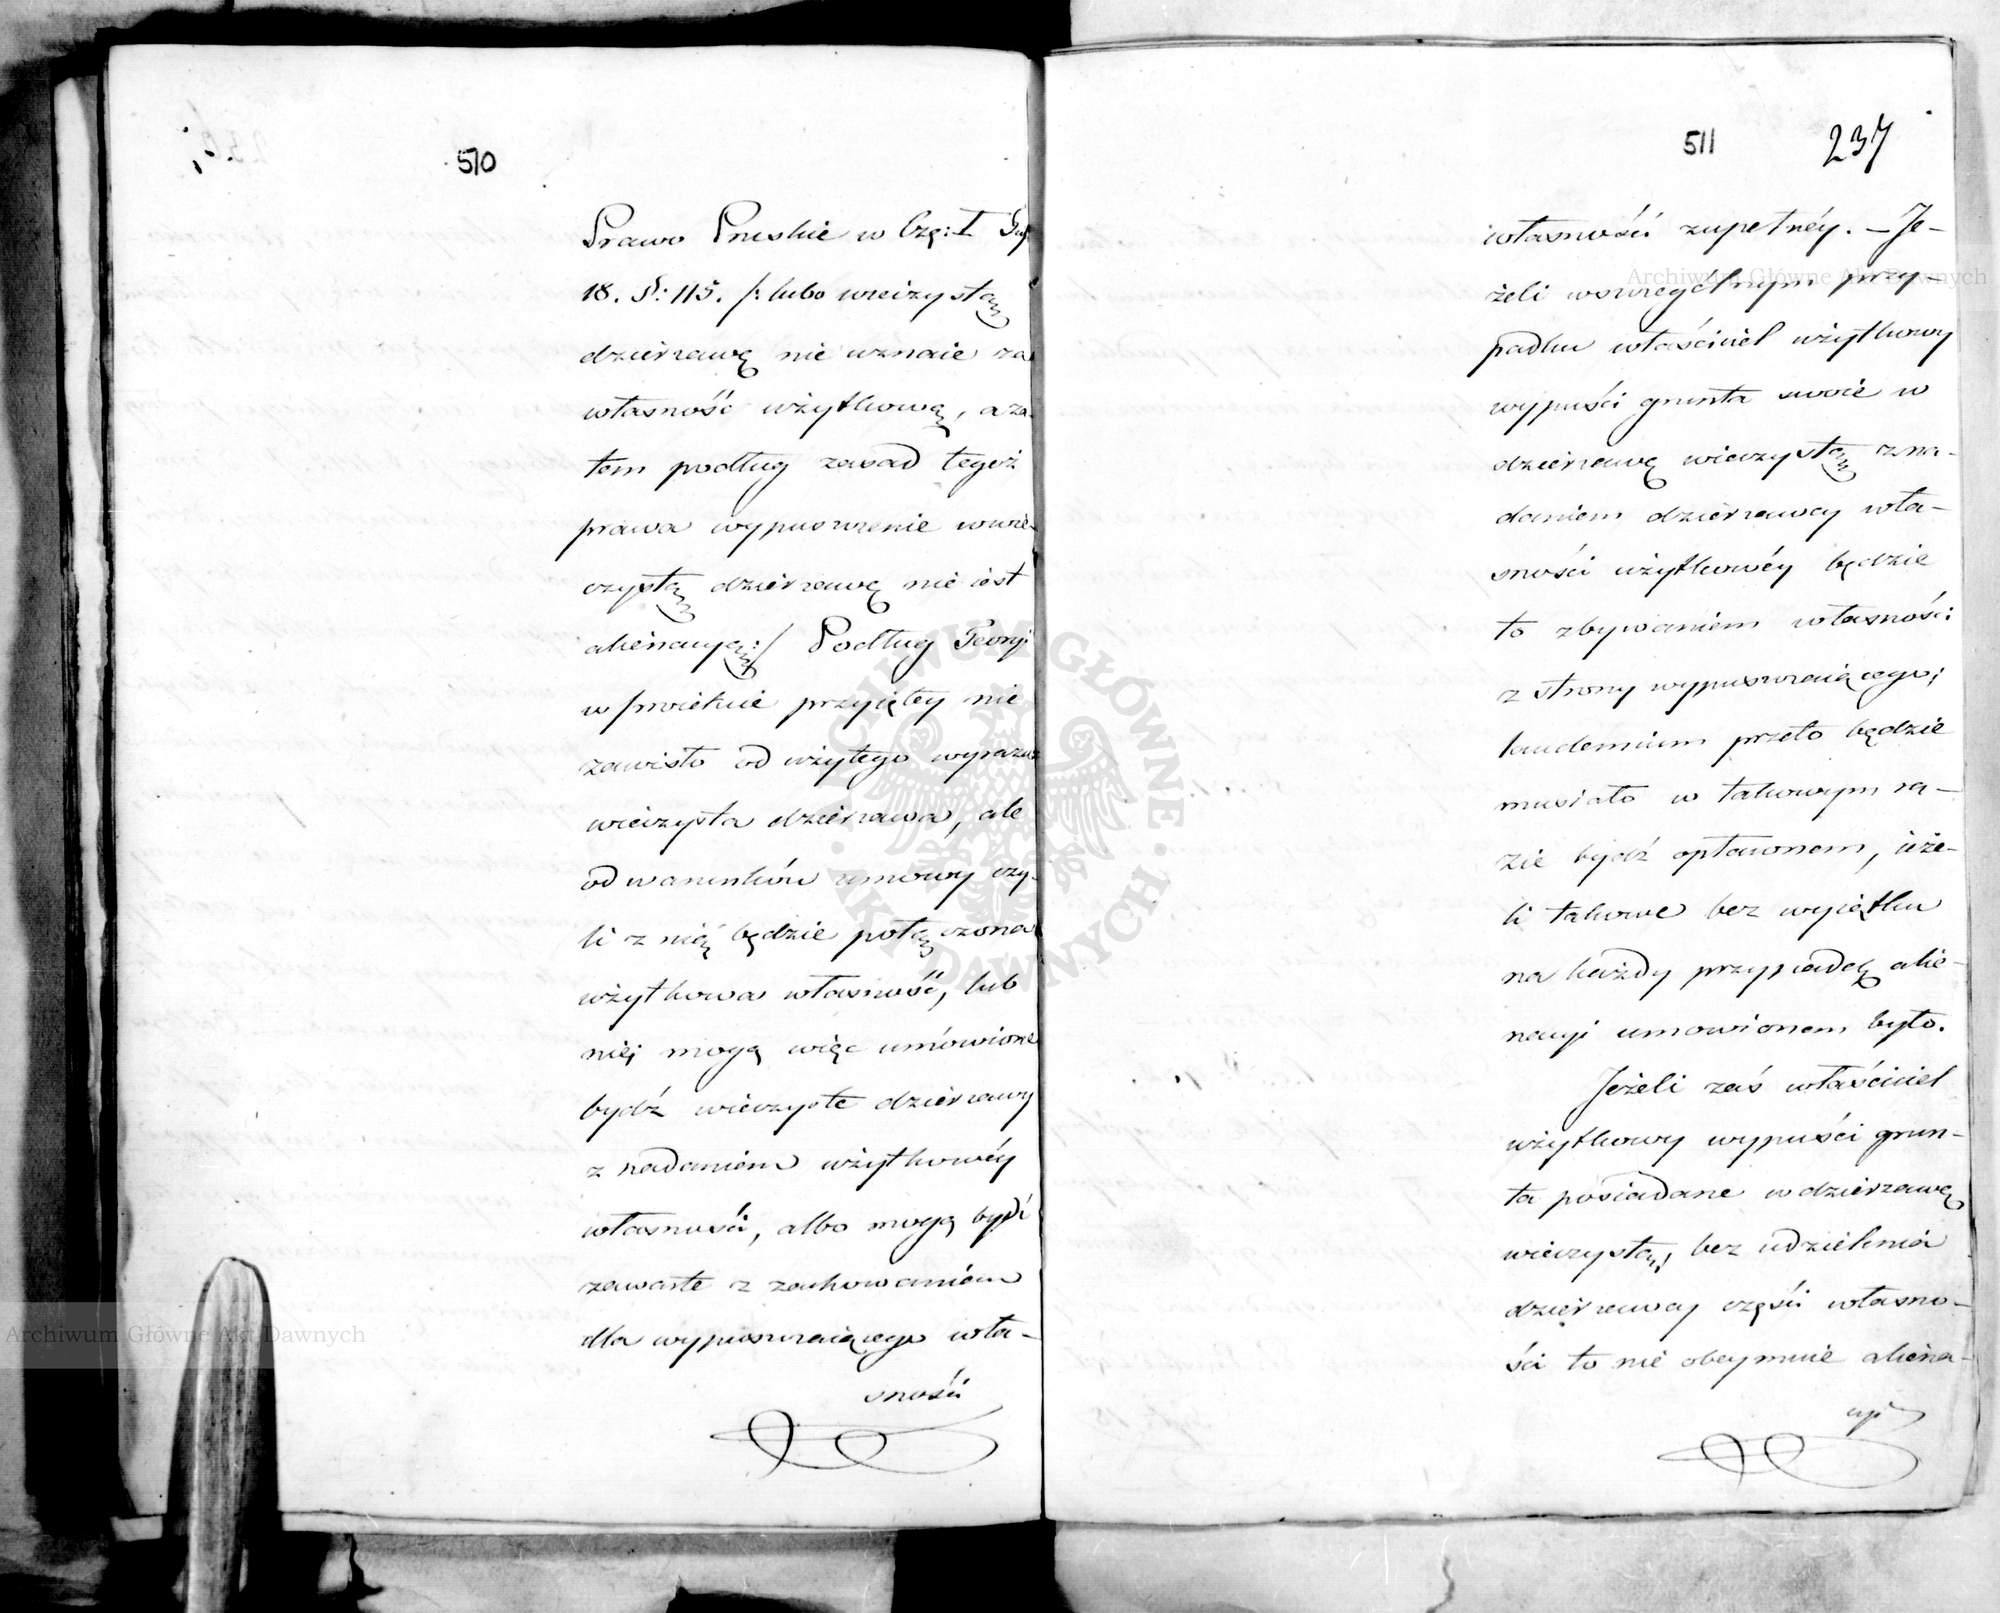 510
Prawo Pruskie w Czę: I Tyt
18. §: 115. /: lubo wieczystą
dzierżawę nie uznaie za
własność użytkową, a za-
tem podług zasad tegoż
prawa wypuszczenie w wie-
czystą dzierżawę nie iest
alienacyą :/ Podług Teoryi
w proiekcie przyiętey nie
zawisło od użytego wyrazu
wieczysta dzierżawa, ale
od warunków umowy czy-
li z nią będzie połączona
użytkowa własność, lub
niej mogą więc umówione
bydź wieczyste dzierżawy
z nadaniem użytkowéy
własności, albo mogą bydź
zawarte z zachowaniem
dla wypuszczaiącego wła-
sności
511
237
własności zupełnéy. – Je-
żeli wszczegelnym przy-
padku właściciel użytkowy
wypuści grunta swoie w
dzierżawę wieczystą z na-
daniem dzierżawcy wła-
sności użytkowéy będzie
to zbywaniem własności
z strony wypuszczaiącego;
laudemium przeto będzie
musiało w takowym ra-
zie bydź opłaconem, ieże-
li takowe bez wyiątku
na każdy przypadek alie-
nacyi umowionem było.
Jeżeli zaś właściciel
użytkowy wypuści grun-
ta posiadane w dzierżawę
wieczystą, bez udzielenia
dzierżawcy części własno-
ści to nie obeymuie aliena-
cyi
Archiwum Główne Akt Dawnych
Archiwum Główne Akt Dawnych
ARCHIWUM GŁÓWNE AKT DAWNYCH